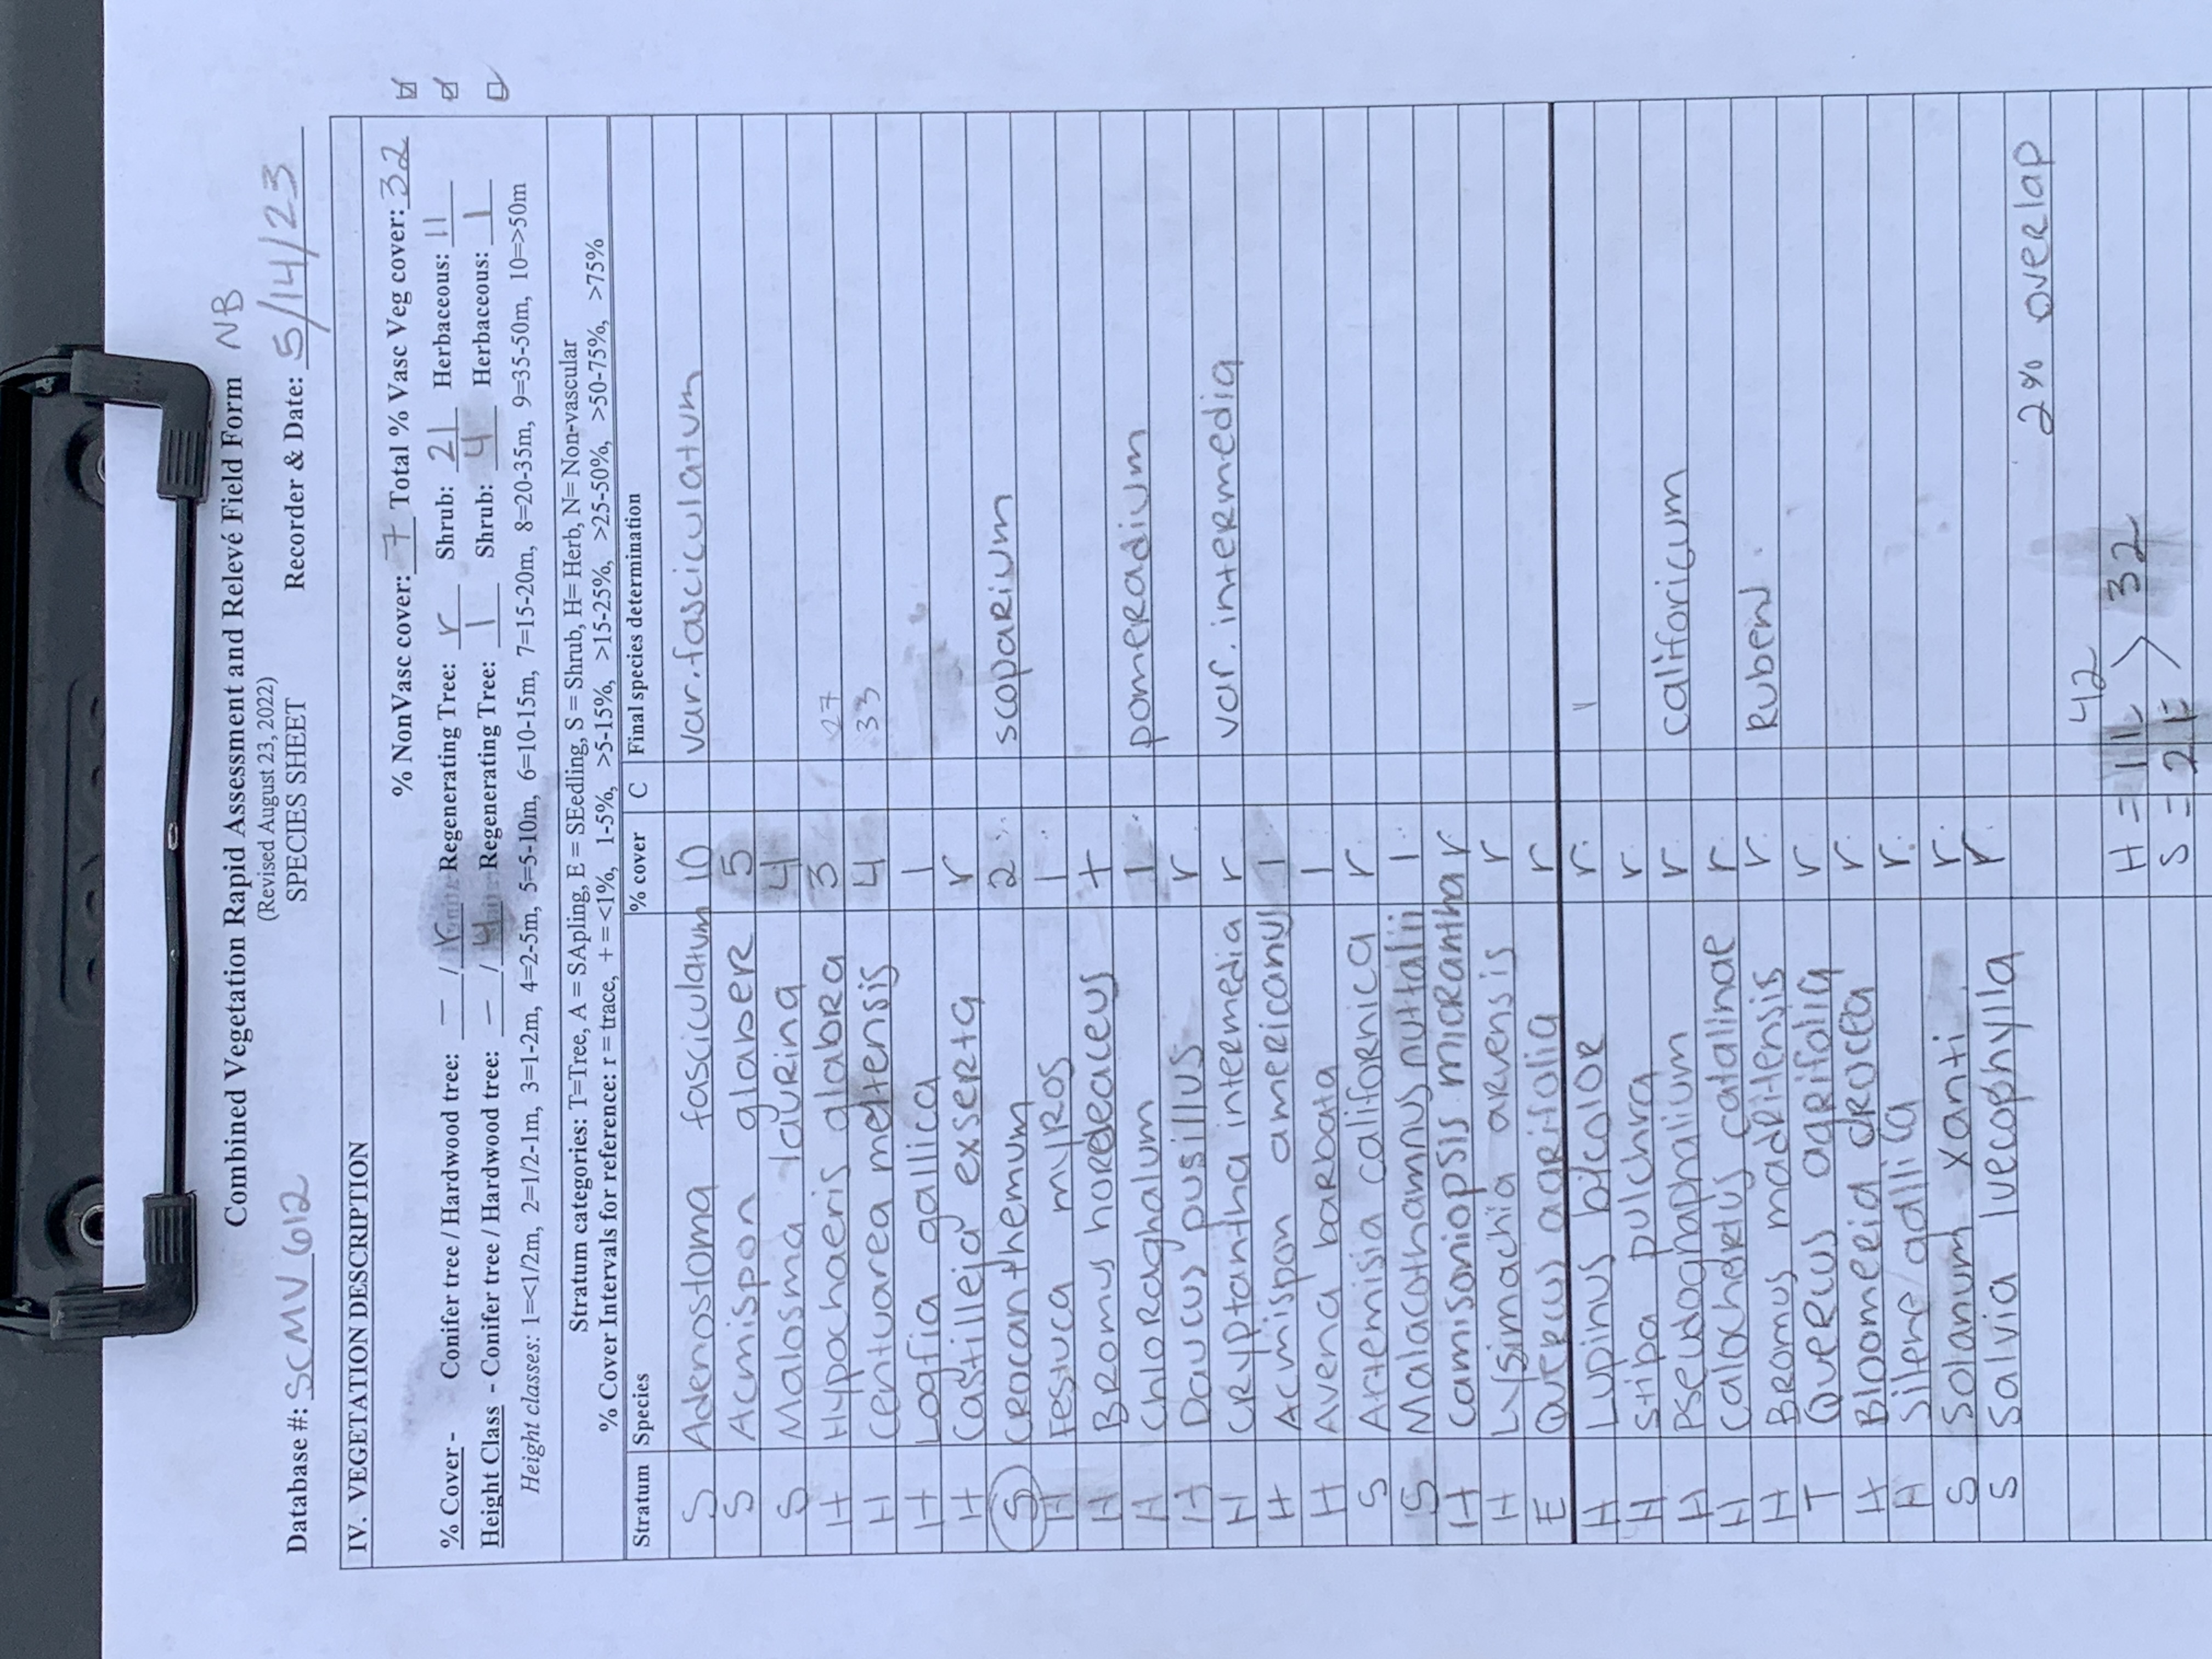 Combined Vegetation Rapid Assessment and Relevé Field Form NB
(Revised August 23, 2022)
Database #: SCMV 612 SPECIES SHEET Recorder & Date: 5/14/23
IV. VEGETATION DESCRIPTION
% NonVasc cover: 7 Total % Vasc Veg cover: 32
% Cover - Conifer tree / Hardwood tree: — / r Regenerating Tree: r Shrub: 21 Herbaceous: 11
Height Class - Conifer tree / Hardwood tree: — / 4 Regenerating Tree: 1 Shrub: 4 Herbaceous: 1
Height classes: 1=<1/2m, 2=1/2-1m, 3=1-2m, 4=2-5m, 5=5-10m, 6=10-15m, 7=15-20m, 8=20-35m, 9=35-50m, 10=>50m
Stratum categories: T=Tree, A = SApling, E = SEedling, S = Shrub, H= Herb, N= Non-vascular
% Cover Intervals for reference: r = trace, + = <1%, 1-5%, >5-15%, >15-25%, >25-50%, >50-75%, >75%
Stratum Species % cover C Final species determination
S Adenostoma fasciculatum 10 var. fasciculatum
S Acmispon glaber 5
S Malosma laurina 4
H Hypochaeris glabra 3 27
H Centuarea meltensis 4 33
H Logfia gallica 1
H Castilleja exserta r
S Crocanthemum 2 scoparium
H Festuca myros 1
H Bromus hordeaceus +
H Chloraghalum 1 pomeradium
H Daucus pusillus r
H Cryptantha intermedia r var. intermedia
H Acmispon americanus 1
H Avena barbata 1
S Artemisia californica r
S Malacothamnus nuttalii 1
H Camisoniopsis micrantha r
H Lysimachia arvensis r
E Quercus agrifolia r
H Lupinus bicolor r
H Stipa pulchra r
H Pseudognaphalium r califoricum
H Calochortus catalinae r
H Bromus madritensis r rubens
T Quercus agrifolia r
H Bloomeria crocea r
H Silene gallica r
S Solanum xanti r
S Salvia luecophylla r
2% overlap
42
H = 11 > 32
S = 21